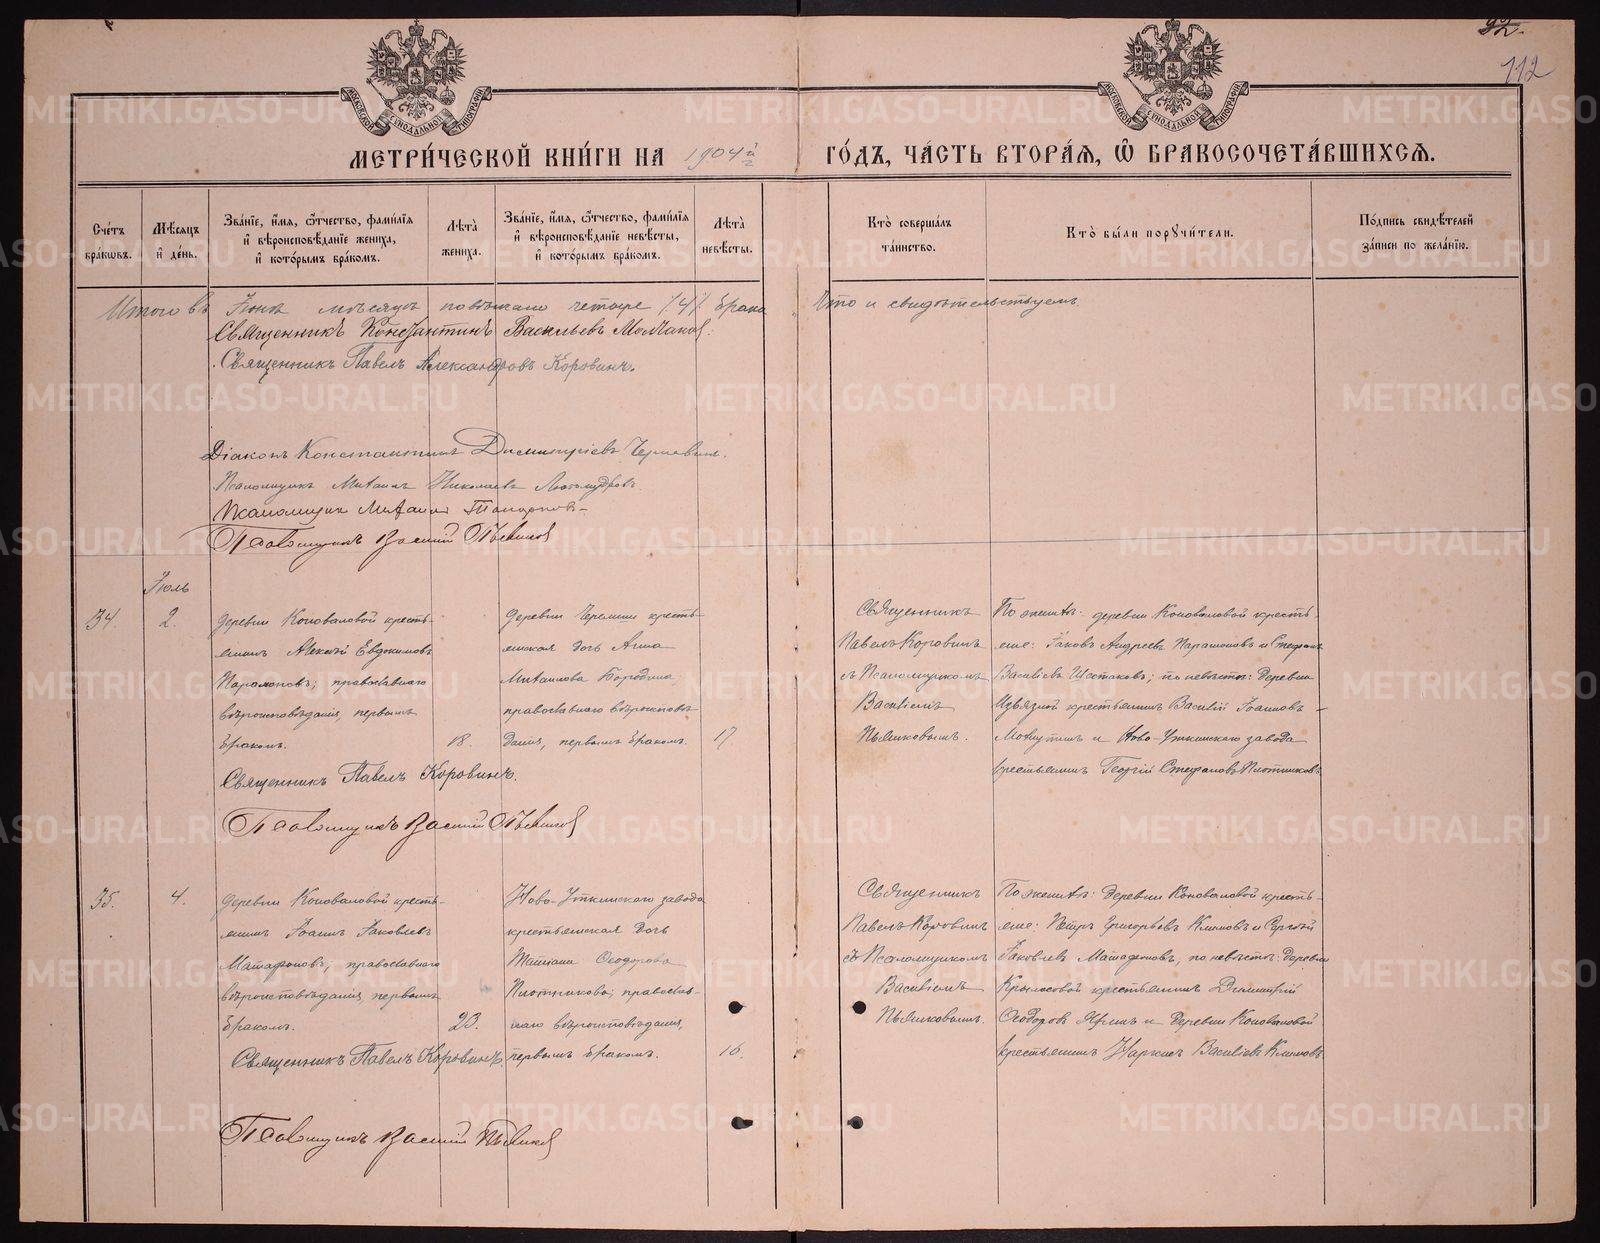 92.
112
МЕТРИ́ЧЕСКОЙ КНИ́ГИ НА 1904й
ГО́ДЪ, ЧА́СТЬ ВТОРА́Я, Ѡ БРАКОСОЧЕТА́ВШИХСЯ.
Сче́тъ бра́ковъ.
Мѣ́сяцъ и де́нь.
Зва́нїе, и́мя, о́тчество, фами́лїя и вѣроисповѣ́данїе жениха̀, и кото́рымъ бра́комъ.
Лѣта̀ жениха.
Зва́нїе, и́мя, о́тчество, фами́лїя и вѣроисповѣ́данїе невѣ́сты, и кото́рымъ бра́комъ.
Лѣта̀ невѣ́сты.
Кто̀ соверша́лъ та́инство.
Кто̀ бы́ли пору́чи́тели.
По́дпись свидѣ́телей за́писи по жела́нїю.
Итого въ Іюнѣ мѣсяцѣ повѣнчано четыре /4/ брака
Что и свидѣтельствуемъ
Священникъ Константинъ Васильевъ Молчановъ.
Священникъ Павелъ Александровъ Коровинъ.
Діаконъ Константинъ Димитріевъ
Псаломщикъ Михаилъ Николаевъ Любомудровъ
Псаломщикъ Михаилъ
Псаломщикъ Василій Пьянковъ
Іюль
34.
2.
деревни Коноваловой кресть-
янинъ Алексѣй Евдокимовъ
Парамоновъ; православнаго
вѣроисповѣданія, первымъ
бракомъ.
18.
деревни Черемши кресть-
янская дочь Анна
Михаилова Бородина,
православнаго вѣроисповѣ-
данія, первымъ бракомъ.
17
Священникъ
Павелъ Коровинъ
съ Псаломщикомъ
Василіемъ
Пьянковымъ.
По женихѣ: деревни Коноваловой кресть-
яне: Іаковъ Андреевъ Парамоновъ и Стефанъ
Василіевъ Шестаковъ; по невѣстѣ: деревни
крестьянинъ Василій Іоанновъ
и Ново-Уткинскаго завода
крестьянинъ Георгій Стефановъ Плотниковъ
Священникъ Павелъ Коровинъ.
Псаломщикъ Василій Пьянковъ
35.
4.
деревни Коноваловой кресть-
янинъ Іоаннъ Іаковлевъ
Матафоновъ, православнаго
вѣроисповѣданія, первымъ
бракомъ.
23.
Ново-Уткинскаго завода
крестьянская дочь
Татіана Ѳеодорова
Плотникова; православ-
наго вѣроисповѣданія,
первымъ бракомъ.
16.
Священникъ
Павелъ Коровинъ
съ Псаломщикомъ
Василіемъ
Пьянковымъ.
По женихѣ: деревни Коноваловой кресть-
яне: Петръ Григорьевъ Климовъ и Сергѣй
Іаковлевъ Матафоновъ, по невѣстѣ: деревни
Крыласовой крестьянинъ Димитрій
Ѳеодоровъ и деревни Коноваловой
крестьянинъ Наркисъ Василіевъ Климовъ
Священникъ Павелъ Коровинъ.
Псаломщикъ Василій Пьянковъ
METRIKI.GASO-URAL.RU